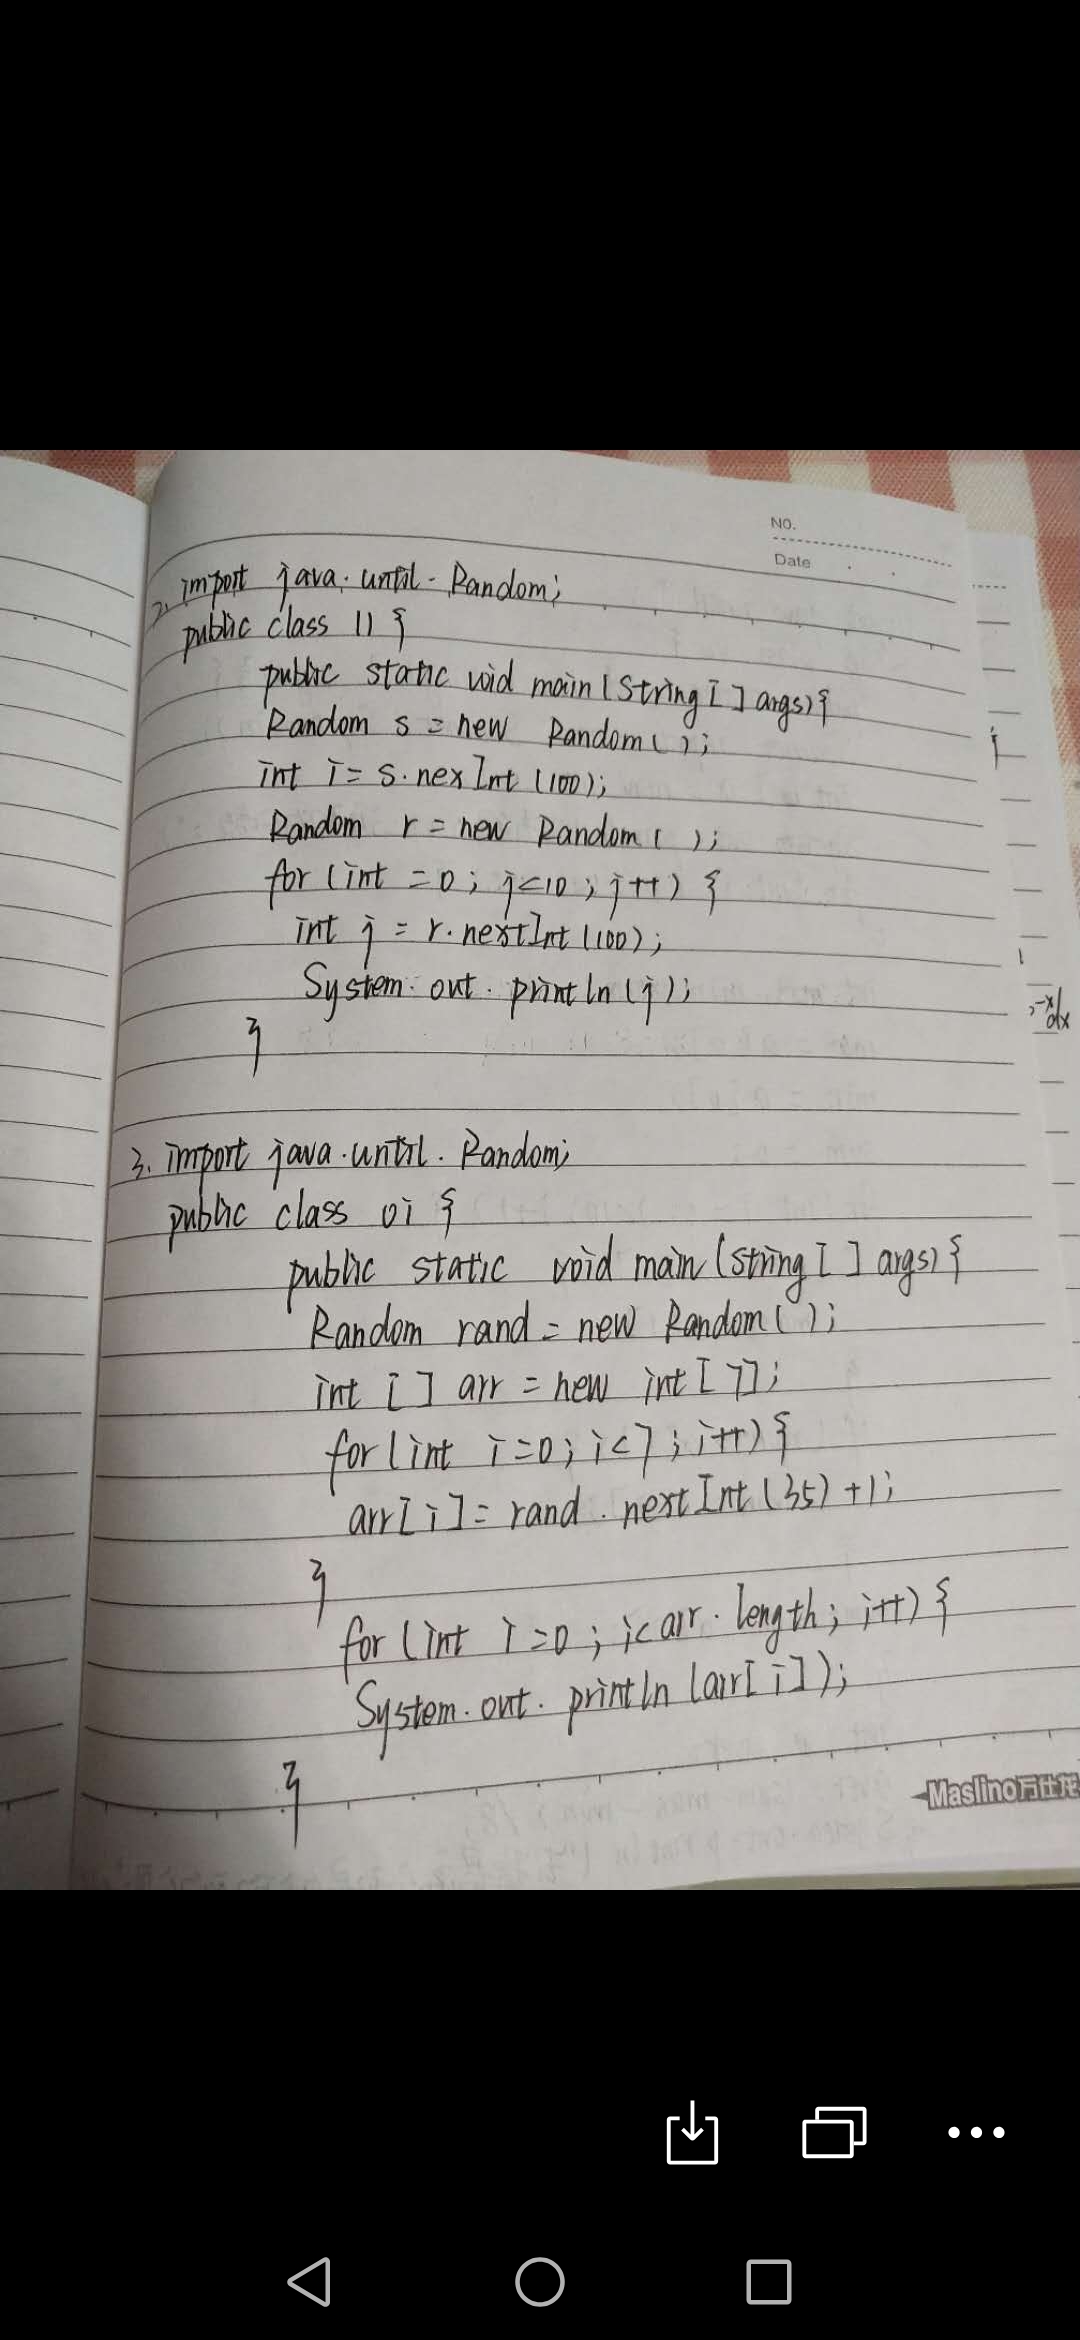 NO.
Date
2. import java.until.Random;
public class 11 {
public static void main(String[] args){
Random s = new Random();
int i = s.nexInt(100);
Random r = new Random( );
for (int =0; j<10; j++) {
int j = r.nextInt(100);
System.out.println(j);
}
3. import java.until.Random;
public class oi {
public static void main(String[] args){
Random rand = new Random();
int [] arr = new int[7];
for(int i=0; i<7; i++){
arr[i] = rand.nextInt(35)+1;
}
for(int i=0; i<arr.length; i++){
System.out.println(arr[i]);
}
Maslino万仕龙